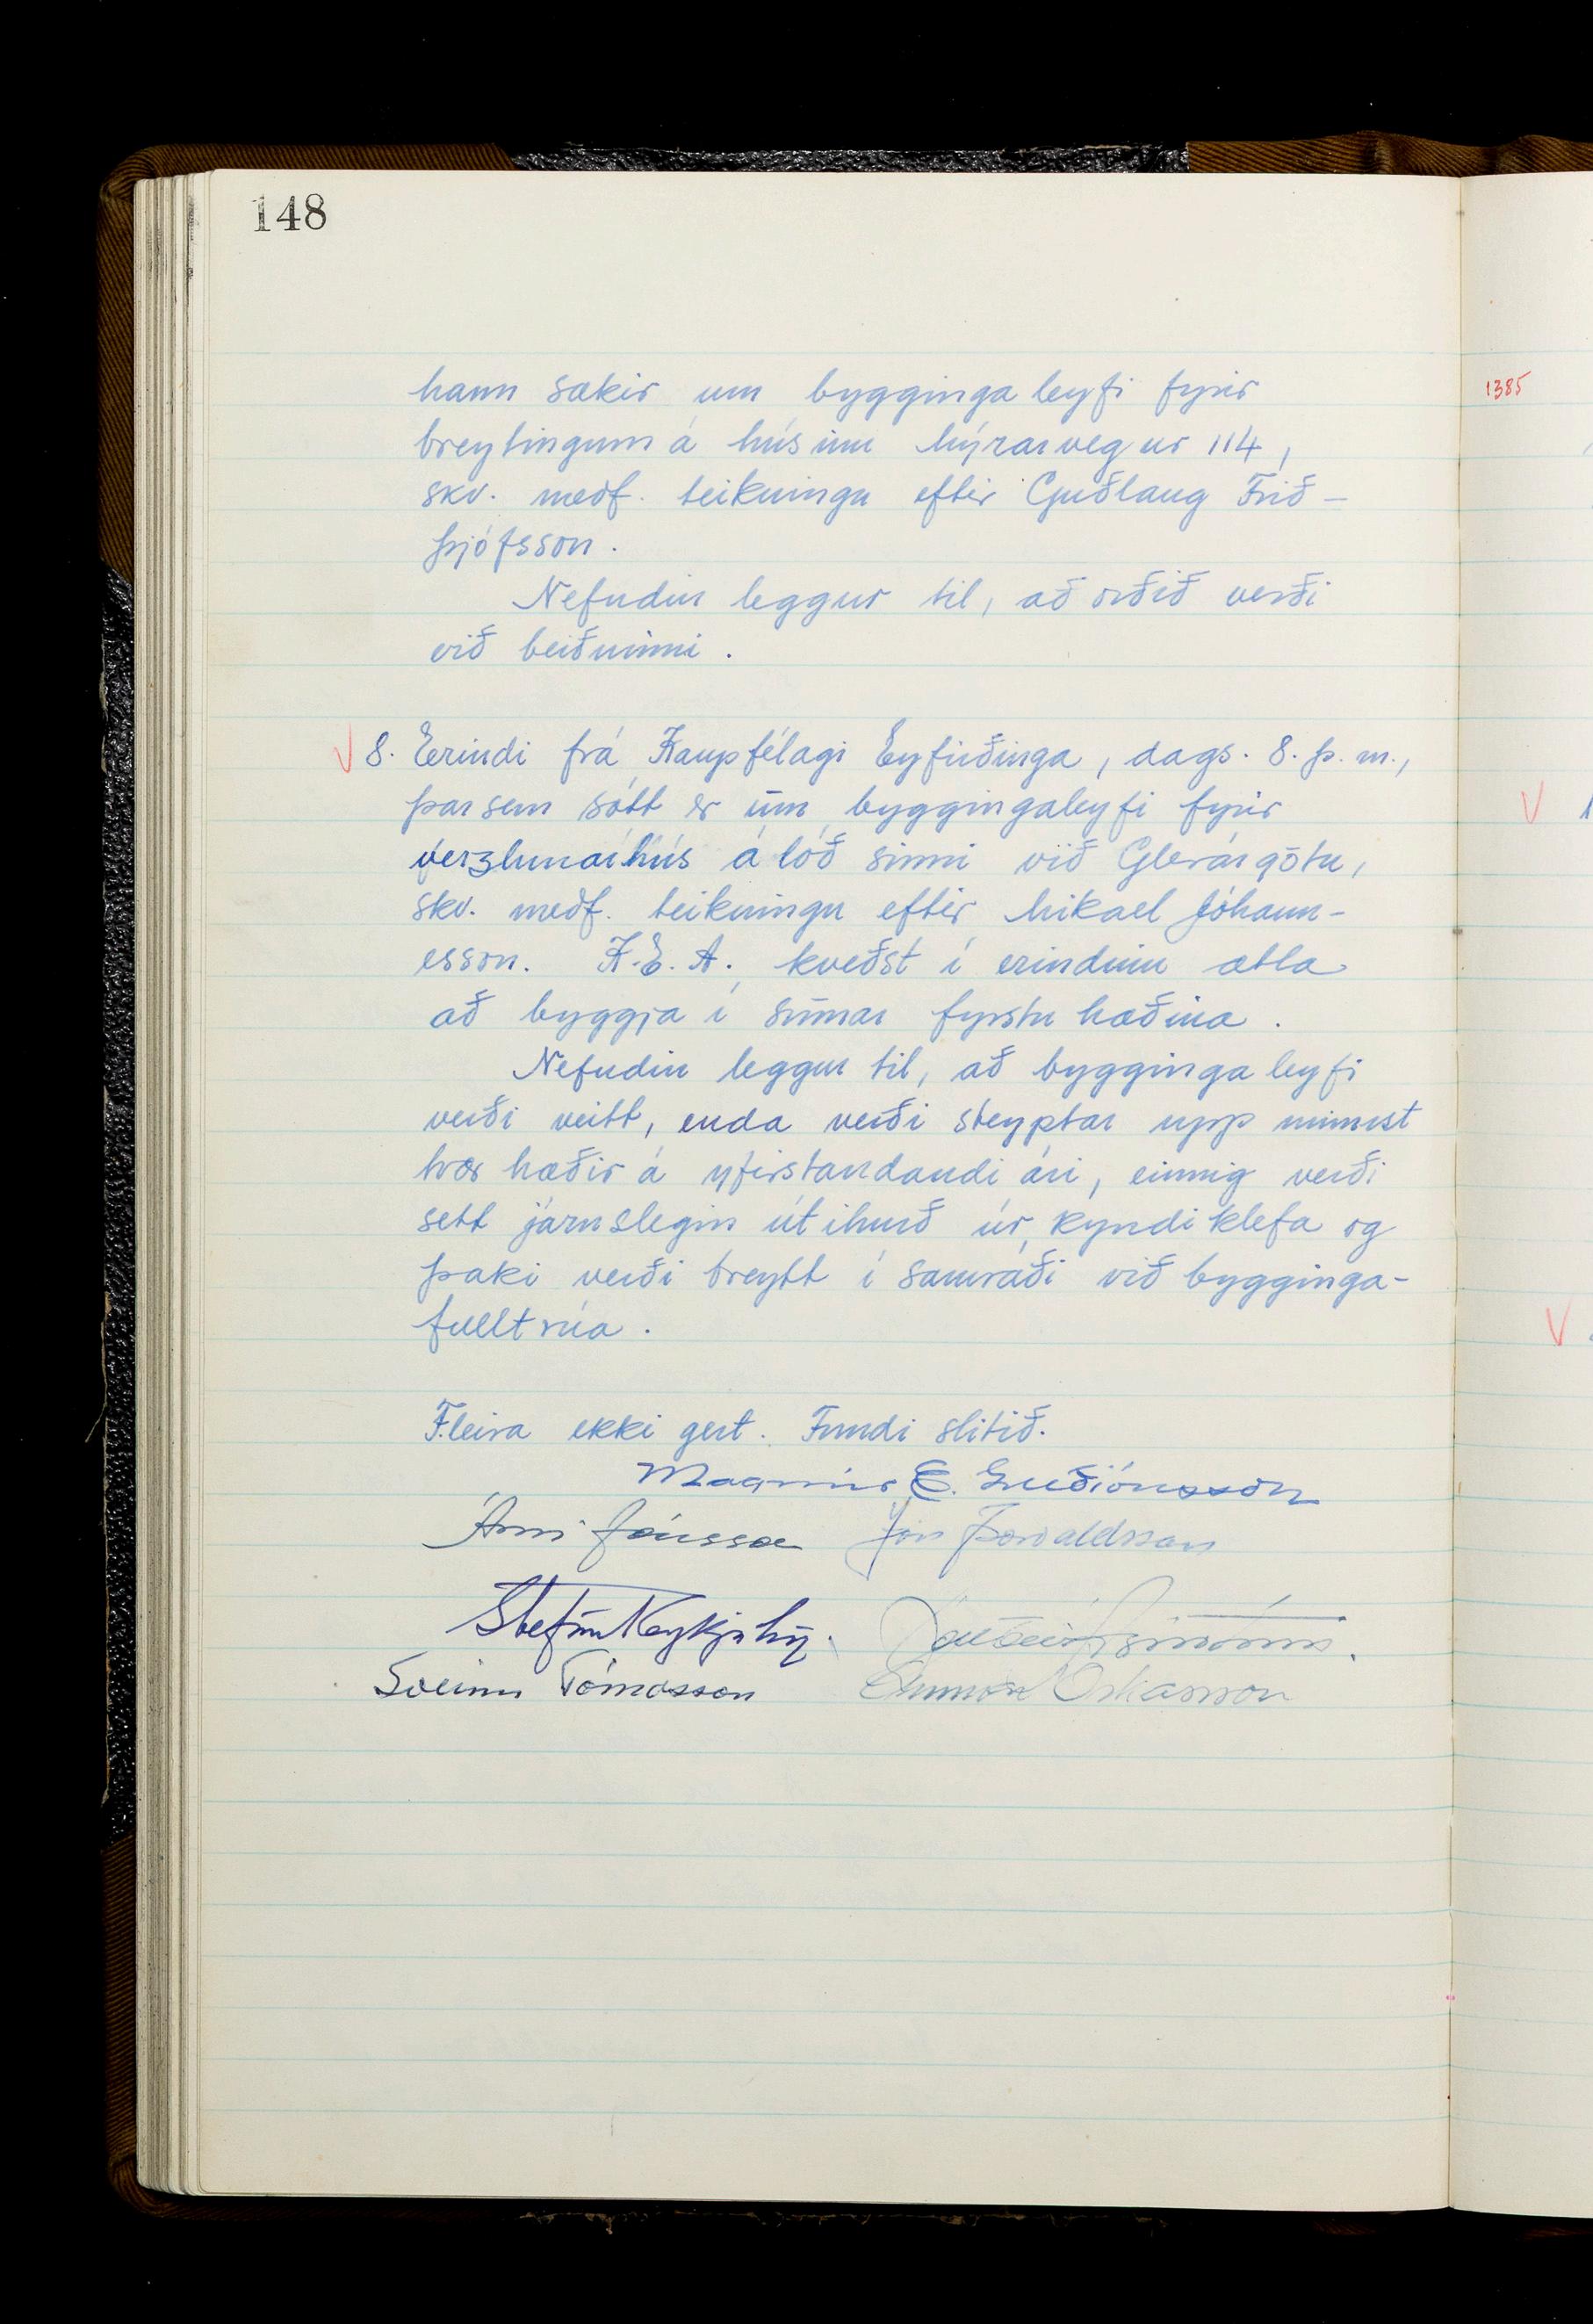 148
hann sækir um byggingaleyfi fyrir
breytingum á húsinu Mýrarvegur 114,
skv. meðf. teikningu eftir Guðlaug Frið-
þjófsson.
Nefndin leggur til, að orðið verði
við beiðninni.
V 8. Erindi frá Kaupfélagi Eyfirðinga, dags. 8. þ. m.,
þar sem sótt er um byggingaleyfi fyrir
verzlunarhús á lóð sinni við Glerárgötu,
skv. meðf. teikningu eftir Mikael Jóhann-
esson. K.E.A. kveðst í erindinu ætla
að byggja í sumar fyrstu hæðina.
Nefndin leggur til, að byggingaleyfi
verði veitt, enda verði steyptar upp minnst
tvær hæðir á yfirstandandi ári, einnig verði
sett járnslegin útihurð úr kyndiklefa og
þaki verði breytt í samráði við bygginga-
fulltrúa.
Fleira ekki gert. Fundi slitið.
Magnús E. Guðjónsson
Árni Jónsson Jón Þorvaldsson
Stefán Reykjalín
Sveinn Tómasson Óskarsson
1385
V
V